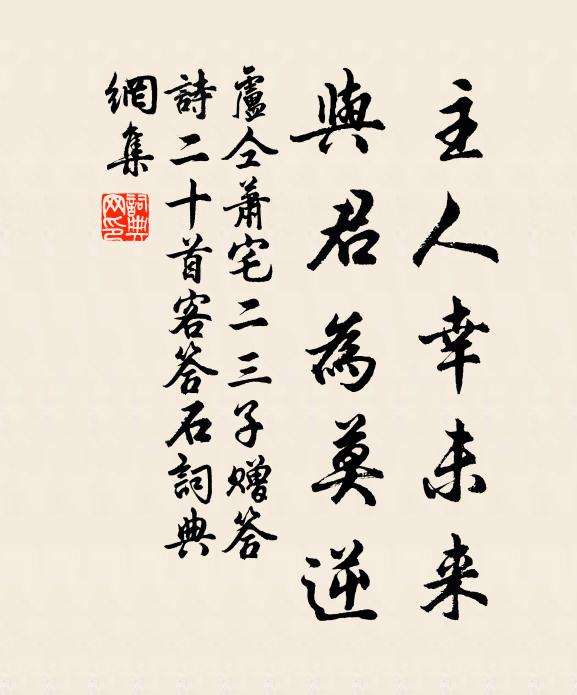 主人幸未来
與君為莫逆
盧仝蕭宅二三子贈答
詩二十首客答石詞典
網集
詞典网印